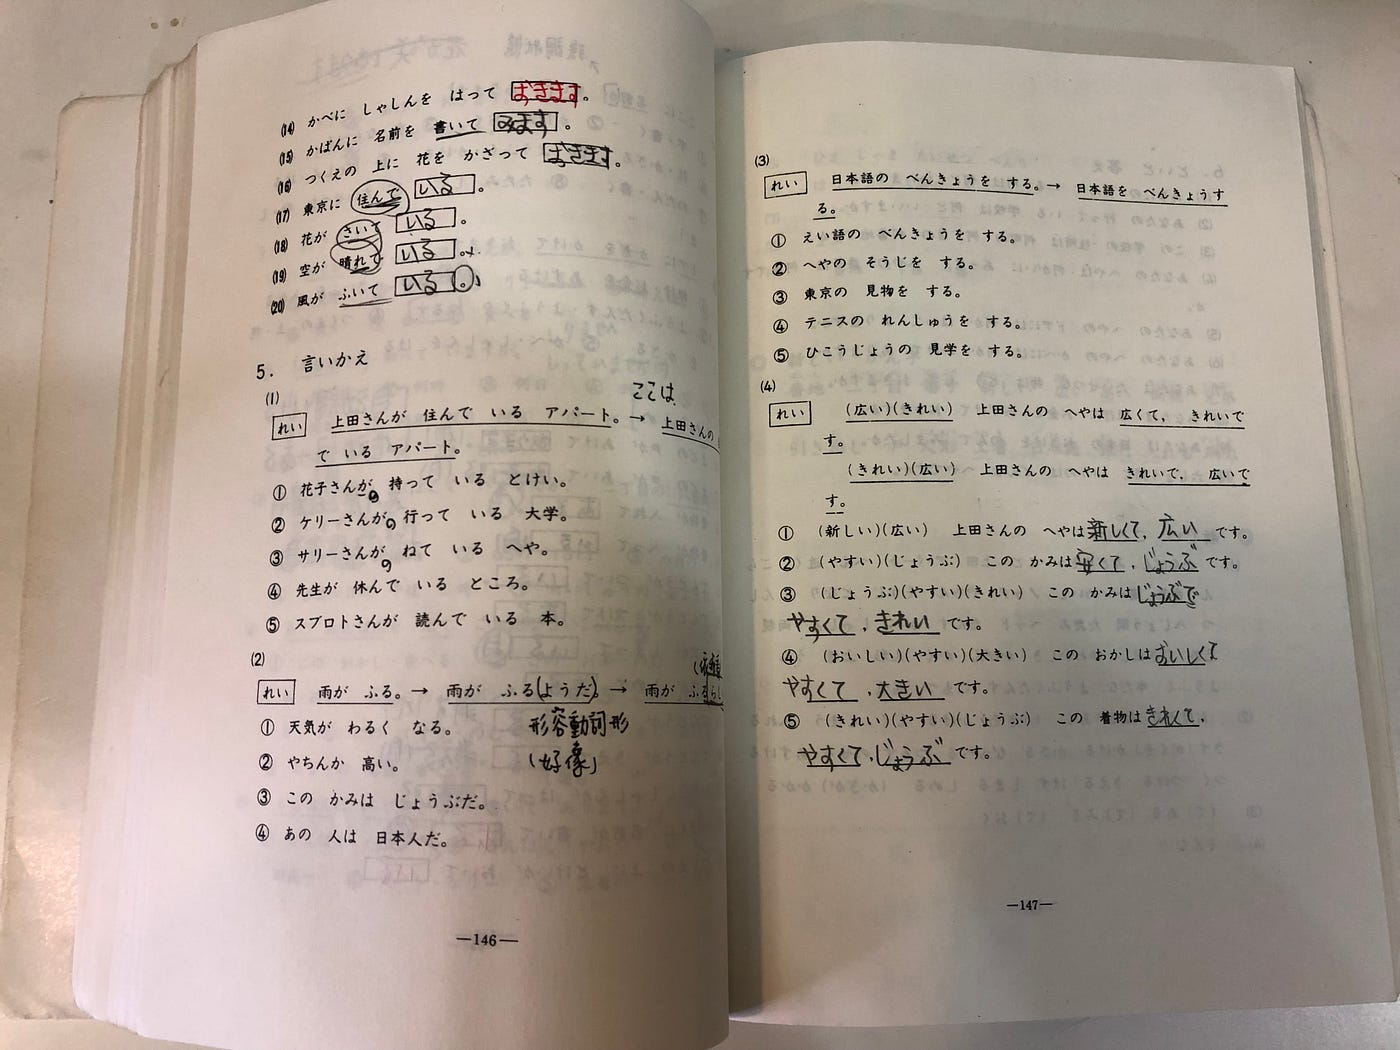 (14) かべに しゃしんを はって おきます。
(15) かばんに 名前を 書いて みます。
(16) つくえの 上に 花を かざって おきます。
(17) 東京に 住んで いる。
(18) 花が さいて いる。
(19) 空が 晴れて いる。
(20) 風が ふいて いる。
5. 言いかえ
(1)
ここは
れい 上田さんが 住んで いる アパート。→ 上田さんの
で いる アパート。
① 花子さんが 持って いる とけい。
の
② ケリーさんが 行って いる 大学。
の
③ サリーさんが ねて いる へや。
の
④ 先生が 休んで いる ところ。
⑤ スブロトさんが 読んで いる 本。
(2)
れい 雨が ふる。→ 雨が ふる(ようだ)。→ 雨が ふるらし
① 天気が わるく なる。
形容動詞形
② やちんか 高い。
(好像)
③ この かみは じょうぶだ。
④ あの 人は 日本人だ。
—146—
(3)
れい 日本語の べんきょうを する。→ 日本語を べんきょうす
る。
① えい語の べんきょうを する。
② へやの そうじを する。
③ 東京の 見物を する。
④ テニスの れんしゅうを する。
⑤ ひこうじょうの 見学を する。
(4)
れい (広い)(きれい) 上田さんの へやは 広くて, きれいで
す。
(きれい)(広い) 上田さんの へやは きれいで, 広いで
す。
① (新しい)(広い) 上田さんの へやは新しくて, 広い です。
② (やすい)(じょうぶ) この かみは安くて, じょうぶ です。
③ (じょうぶ)(やすい)(きれい) この かみはじょうぶで
やすくて, きれい です。
④ (おいしい)(やすい)(大きい) この おかしはおいしくて
やすくて, 大きい です。
⑤ (きれい)(やすい)(じょうぶ) この 着物はきれくて,
やすくて, じょうぶ です。
—147—